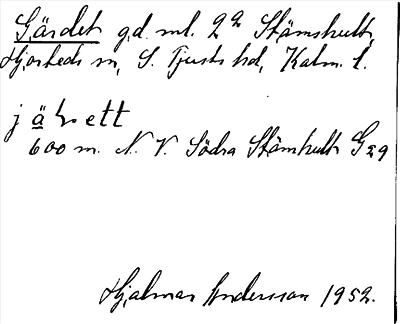 Gärdet gd. ml. 2ª Stämshult,
Hjorteds sn, S. Tjusts hd, Kalm. l.
jäṣett
600 m. N. V. Södra Stämhult G 29
Hjalmar Andersson 1952.